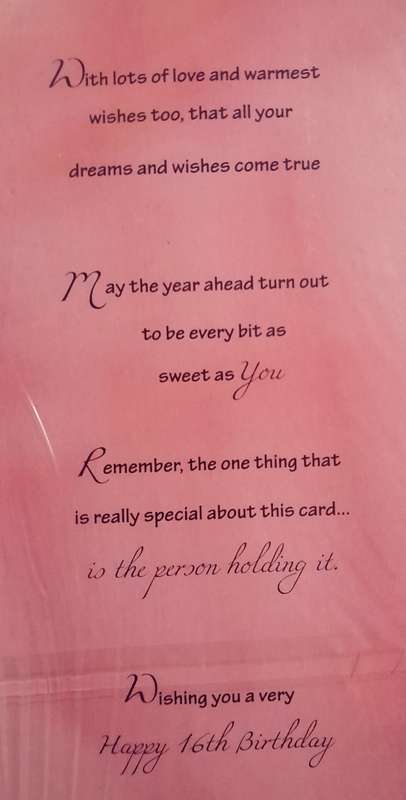 With lots of love and warmest
wishes too, that all your
dreams and wishes come true
May the year ahead turn out
to be every bit as
sweet as You
Remember, the one thing that
is really special about this card...
is the person holding it.
Wishing you a very
Happy 16th Birthday